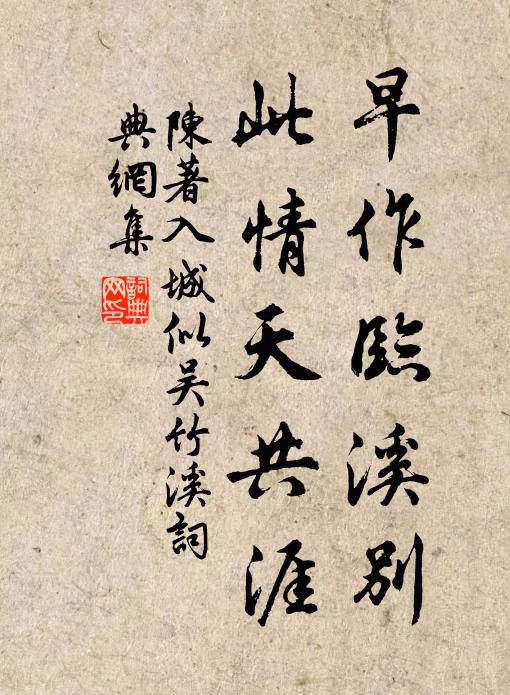 早作臨溪別
此情天共涯
陳著入城似吴竹溪詞
典網集
詞典網印